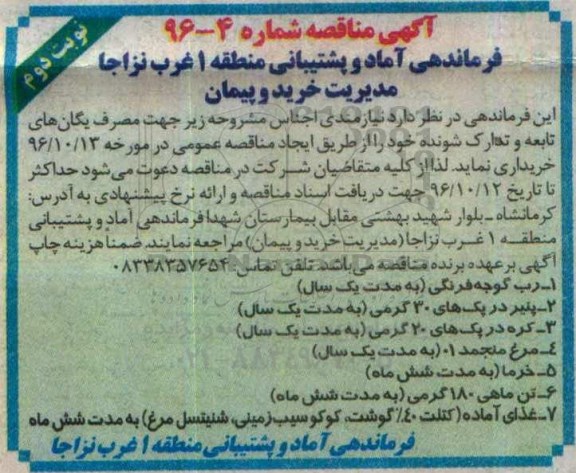 آگهی مناقصه شماره ۴-۹۶
نوبت دوم
فرماندهی آماد و پشتیبانی منطقه ۱ غرب نزاجا
مدیریت خرید و پیمان
این فرماندهی در نظر دارد نیازمندی اجناس مشروحه زیر جهت مصرف یگان‌های
تابعه و تدارک شونده خود را از طریق ایجاد مناقصه عمومی در مورخه ۹۶/۱۰/۱۳
خریداری نماید. لذا از کلیه متقاضیان شرکت در مناقصه دعوت می‌شود حداکثر
تا تاریخ ۹۶/۱۰/۱۲ جهت دریافت اسناد مناقصه و ارائه نرخ پیشنهادی به آدرس:
کرمانشاه - بلوار شهید بهشتی مقابل بیمارستان شهدا فرماندهی آماد و پشتیبانی
منطقه ۱ غرب نزاجا (مدیریت خرید و پیمان) مراجعه نمایند. ضمناً هزینه چاپ
آگهی بر عهده برنده مناقصه می‌باشد. تلفن تماس: ۰۸۳۳۸۳۵۷۶۵۴
۱-رب گوجه‌فرنگی (به مدت یک سال)
۲-پنیر در پک‌های ۳۰ گرمی (به مدت یک سال)
۳-کره در پک‌های ۲۰ گرمی (به مدت یک سال)
۴-مرغ منجمد ۰۱ (به مدت یک سال)
۵-خرما (به مدت شش ماه)
۶-تن ماهی ۱۸۰ گرمی (به مدت شش ماه)
۷-غذای آماده (کتلت ۴۰٪ گوشت، کوکو سیب‌زمینی، شنیتسل مرغ) به مدت شش ماه
فرماندهی آماد و پشتیبانی منطقه ۱ غرب نزاجا